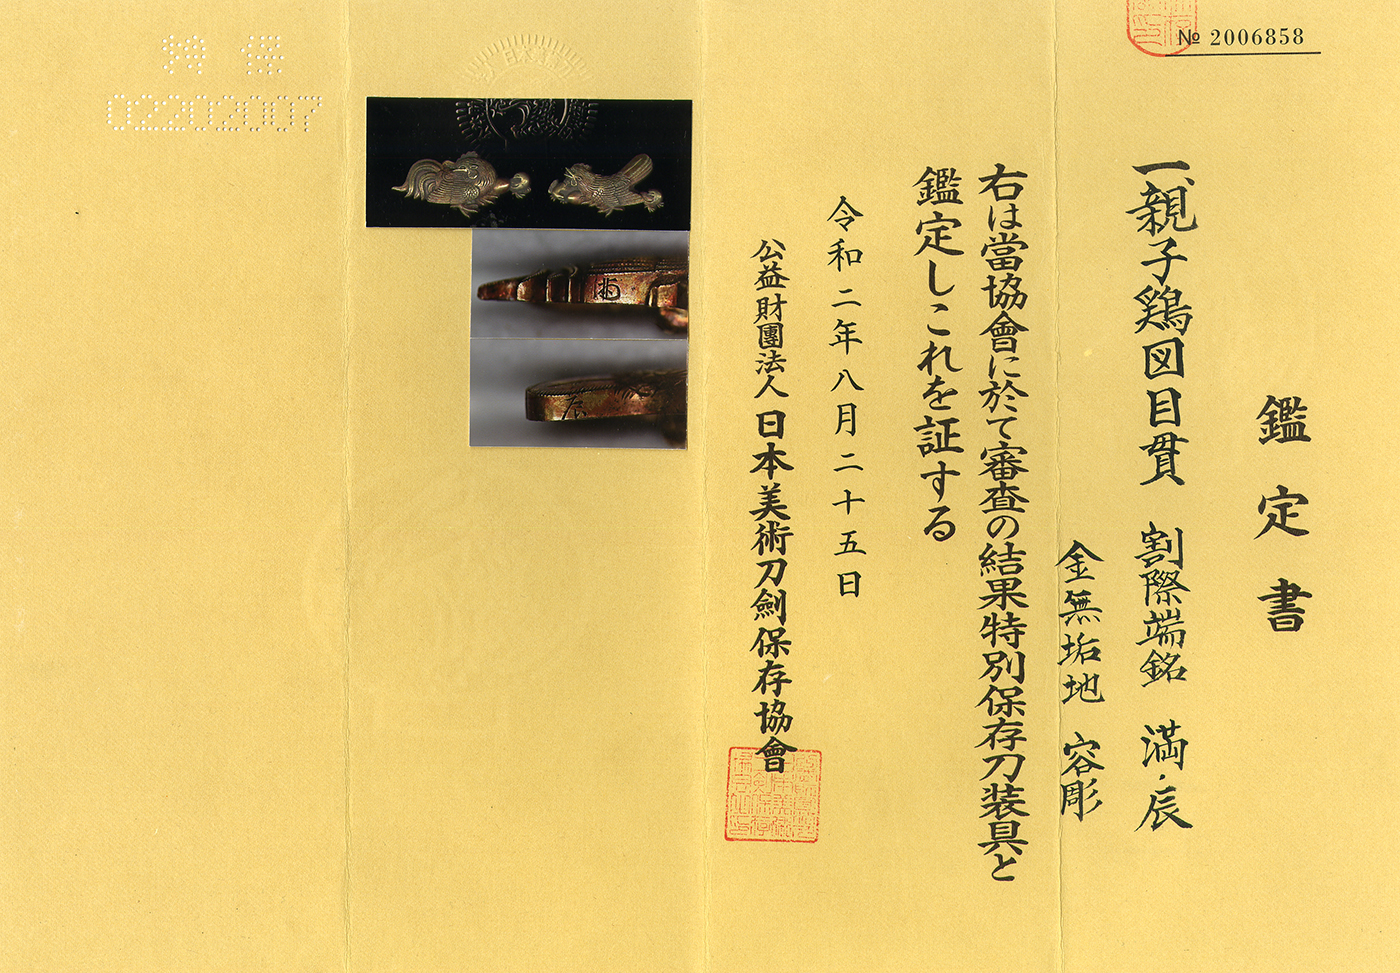 № 2006858
鑑定書
一、親子鶏図目貫 割際端銘 満・辰
金無垢地 容彫
右は當協會に於て審査の結果特別保存刀装具と
鑑定しこれを証する
令和二年八月二十五日
公益財團法人 日本美術刀劍保存協會
02202007
辰